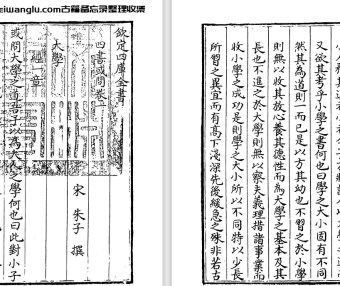 eiwanglu.com古籍备忘录整理收集
欽定四庫全書
四書或問卷一
宋 朱子 撰
大學
經一章
或問大學之道吾子以為大人之學何也曰此對小子
又欲其考乎小學之書何也曰學之大小固有不同
然其為道則一而已是以方其幼也不習之於小學
則無以收其放心養其德性而為大學之基本及其
長也不進之於大學則無以察夫義理措諸事業而
收小學之成功是則學之大小所以不同特以少長
所習之異宜而有高下淺深先後緩急之殊非若古